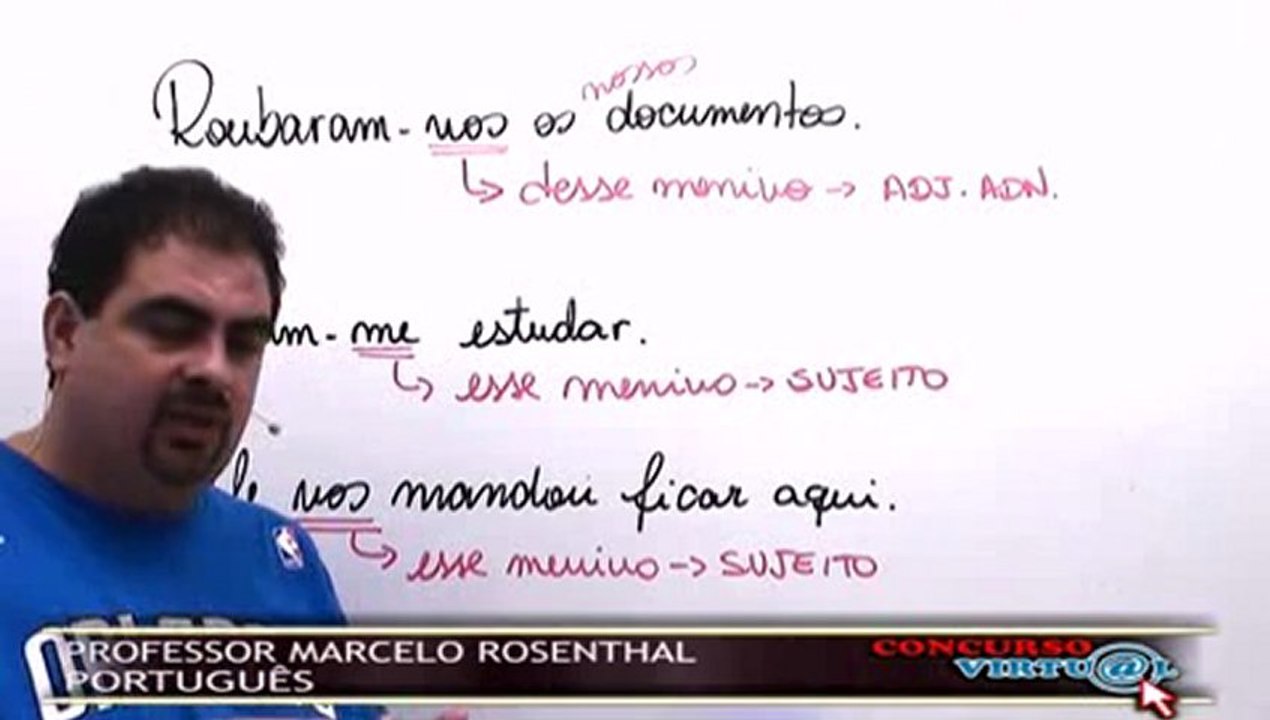 nossos
Roubaram-nos os documentos.
↳ desse menino -> ADJ. ADN.
am-me estudar.
↳ esse menino -> SUJEITO
le nos mandou ficar aqui.
↳ esse menino -> SUJEITO
PROFESSOR MARCELO ROSENTHAL
PORTUGUÊS
CONCURSO
VIRTU@L